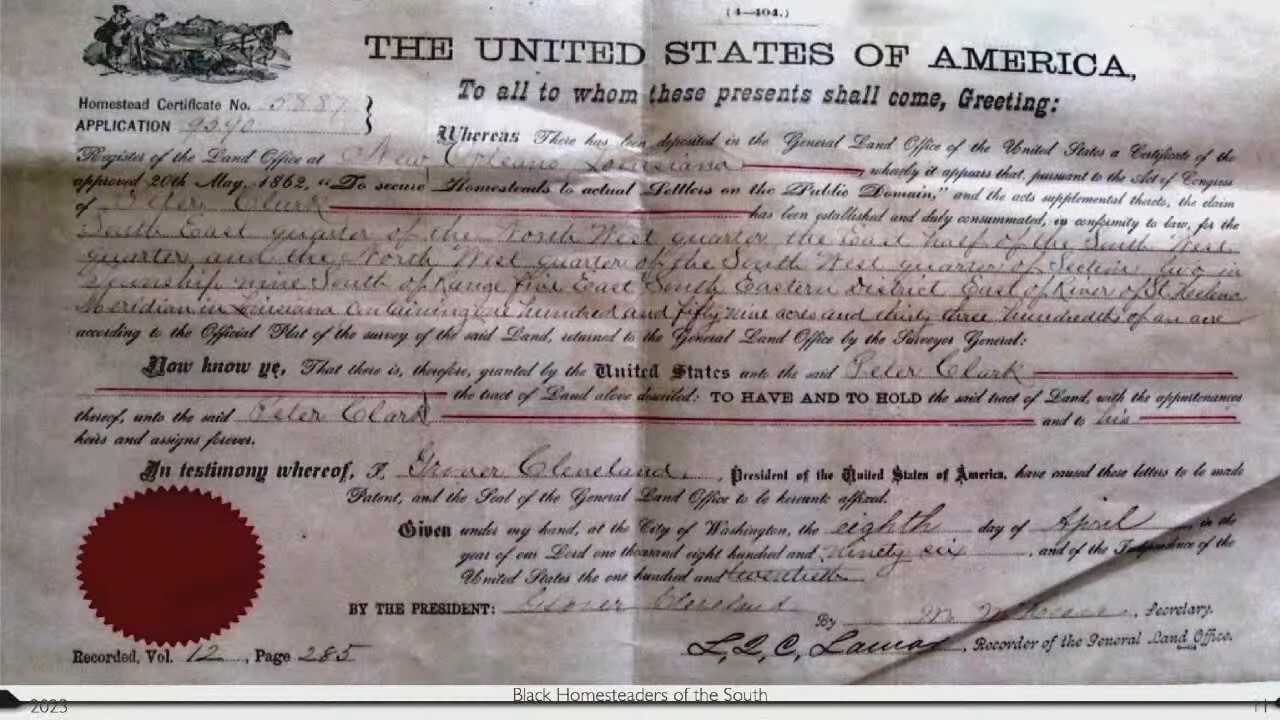 (4—404.)
THE UNITED STATES OF AMERICA,
To all to whom these presents shall come, Greeting:
Homestead Certificate No. 5887
APPLICATION 9590
Whereas There has been deposited in the General Land Office of the United States a Certificate of the
Register of the Land Office at New Orleans Louisiana, whereby it appears that, pursuant to the Act of Congress
approved 20th May, 1862, "To secure Homesteads to actual Settlers on the Public Domain," and the acts supplemental thereto, the claim
of Peter Clark has been established and duly consummated, in conformity to law, for the
South East quarter of the North West quarter the East half of the South West
quarter and the North West quarter of the South West quarter of Section two in
Township nine South of Range five East South Eastern District East of River of St. Helena
Meridian in Louisiana containing one hundred and fifty nine acres and thirty three hundredths of an acre
according to the Official Plat of the survey of the said Land, returned to the General Land Office by the Surveyor General:
Now know ye, That there is, therefore, granted by the United States unto the said Peter Clark
the tract of Land above described: TO HAVE AND TO HOLD the said tract of Land, with the appurtenances
thereof, unto the said Peter Clark and to his
heirs and assigns forever.
In testimony whereof, I, Grover Cleveland, President of the United States of America, have caused these letters to be made
Patent, and the Seal of the General Land Office to be hereunto affixed.
Given under my hand, at the City of Washington, the eighth day of April, in the
year of our Lord one thousand eight hundred and ninety six, and of the Independence of the
United States the one hundred and twentieth
BY THE PRESIDENT: Grover Cleveland
By M. , Secretary.
L. Q. C. Lamar, Recorder of the General Land Office.
Recorded, Vol. 12, Page 285
Black Homesteaders of the South
2023
11